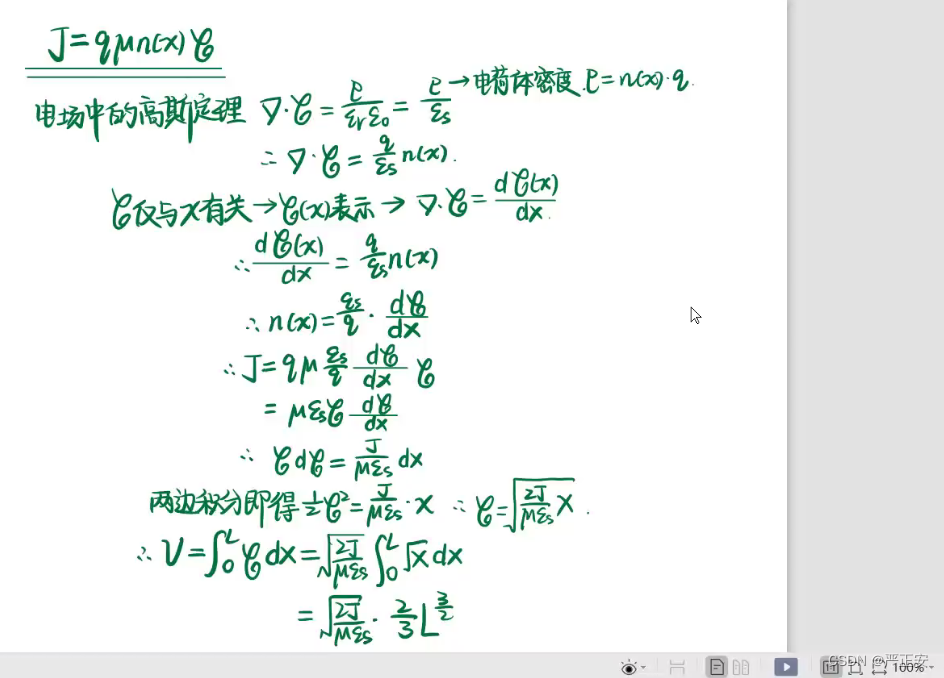 J=qμn(x)ℰ
电场中的高斯定理 ∇·ℰ = ρ/(εrε0) = ρ/εs → 电荷体密度 ρ=n(x)·q.
∴ ∇·ℰ = q/εs n(x).
ℰ仅与x有关→ℰ(x)表示→ ∇·ℰ = dℰ(x)/dx.
∴ dℰ(x)/dx = q/εs n(x)
∴ n(x)= εs/q · dℰ/dx
∴ J= qμ εs/q dℰ/dx ℰ
= μεsℰ dℰ/dx
∴ ℰdℰ = J/(μεs) dx
两边积分即得 ½ℰ²= J/(μεs) · x ∴ ℰ=√(2J/(μεs) x) .
∴ V=∫₀ᴸ ℰdx = √(2J/(μεs)) ∫₀ᴸ √x dx
= √(2J/(μεs)) · 2/3 L^(3/2)
CSDN @严正安
100%